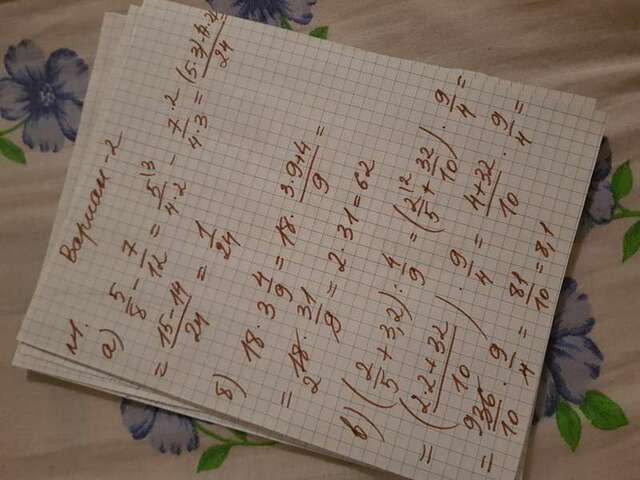 Вариан-2
№1.
а) 5/8 - 7/12 = 5/4·2 \3 - 7/4·3 ·2 = (5·3)-(7·2)/24
= 15-14/24 = 1/24
б) 18·3 4/9 = 18· 3·9+4/9 =
= 2 18· 31/9 = 2·31=62
в) (2/5 + 3,2) : 4/9 = (2/5 \2 + 32/10) · 9/4 =
= (2·2+32/10) · 9/4 = 4+32/10 · 9/4 =
= 9 36/10 · 9/4 = 81/10 = 8,1